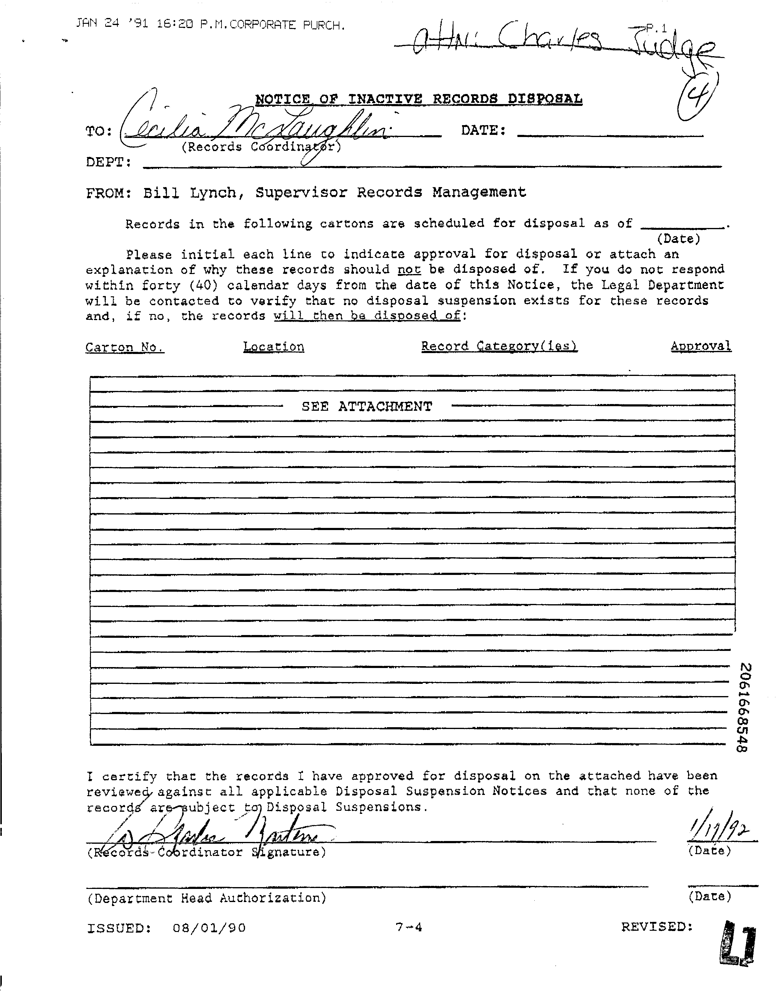 JAN 24 '91 16:20 P.M.CORPORATE PURCH.
P.1
Attn: Charles Judge
4
NOTICE OF INACTIVE RECORDS DISPOSAL
TO: Cecilia McLaughlin DATE:
(Records Coordinator)
DEPT:
FROM: Bill Lynch, Supervisor Records Management
Records in the following cartons are scheduled for disposal as of ________.
(Date)
Please initial each line to indicate approval for disposal or attach an
explanation of why these records should not be disposed of. If you do not respond
within forty (40) calendar days from the date of this Notice, the Legal Department
will be contacted to verify that no disposal suspension exists for these records
and, if no, the records will then be disposed of:
Carton No. Location Record Category(ies) Approval
SEE ATTACHMENT
2061668548
I certify that the records I have approved for disposal on the attached have been
reviewed against all applicable Disposal Suspension Notices and that none of the
records are subject to Disposal Suspensions.
(Records Coordinator Signature) (Date)
(Department Head Authorization) (Date)
ISSUED: 08/01/90 7-4 REVISED: